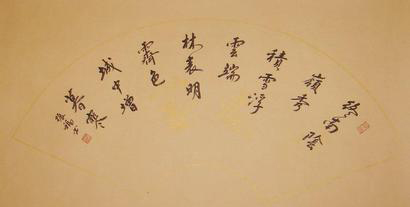 終南陰
嶺秀
積雪浮
雲端
林表明
霽色
城中增
暮寒